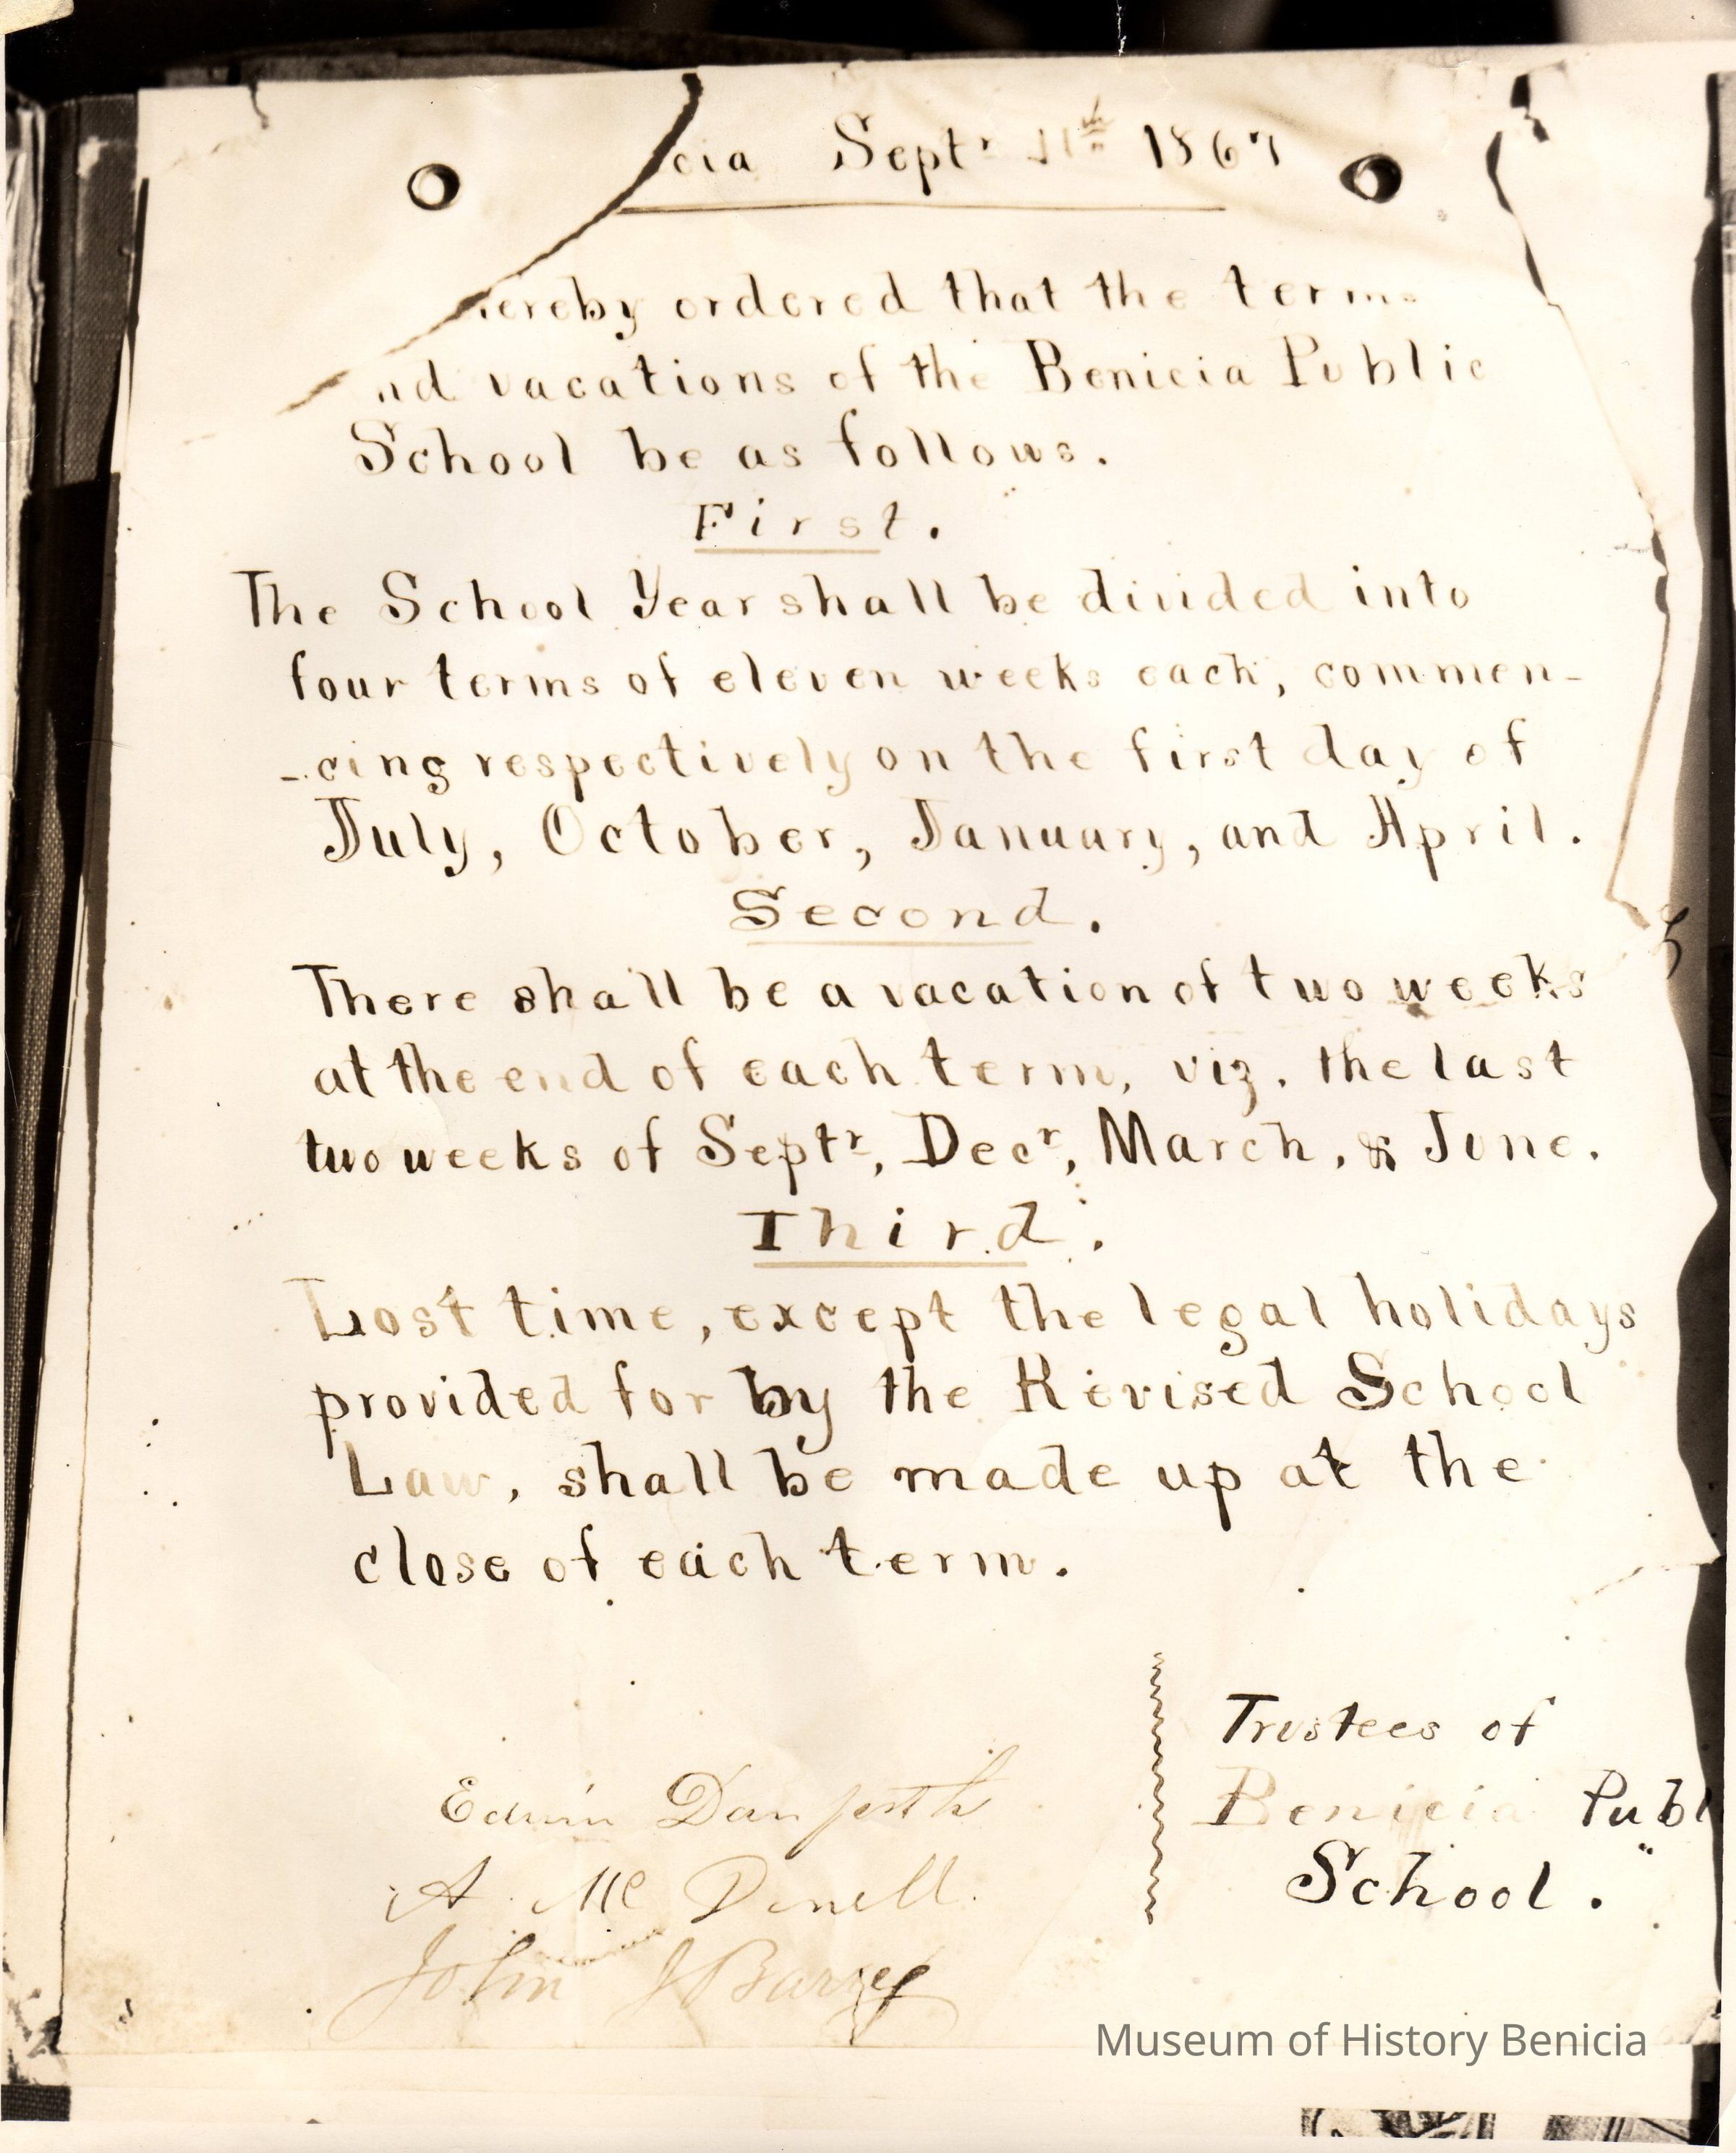 cia Septr 11th 1867
hereby ordered that the terms
nd vacations of the Benicia Public
School be as follows.
First.
The School Year shall be divided into
four terms of eleven weeks each, commen-
-cing respectively on the first day of
July, October, January, and April.
Second.
There shall be a vacation of two weeks
at the end of each term, viz. the last
two weeks of Septr, Decr, March, & June.
Third.
Lost time, except the legal holidays
provided for by the Revised School
Law, shall be made up at the
close of each term.
Trustees of
Benicia Publ
School.
Edwin Danforth
A. Mc Donell.
John J Barry
Museum of History Benicia